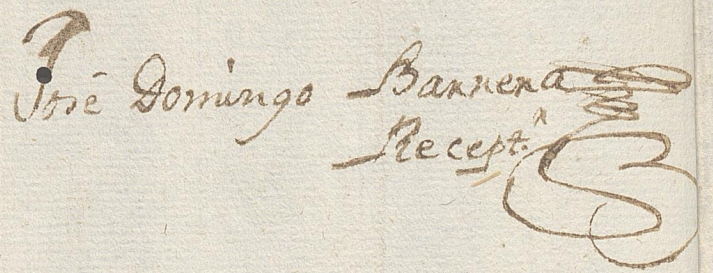 José Domingo Barrera
Recept.r